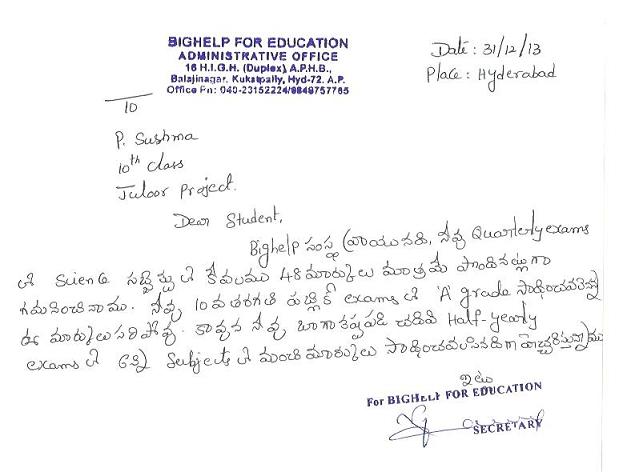 BIGHELP FOR EDUCATION
ADMINISTRATIVE OFFICE
16 H.I.G.H. (Duplex), A.P.H.B.,
Balajinagar, Kukatpally, Hyd-72. A.P.
Office Pn: 040-23152224/9849757765
Date: 31/12/13
Place: Hyderabad
10
P. Sushma
10th class
Juloor Project.
Dear Student,
Bighelp సంస్థ వ్రాయునది, నీవు Quarterly exams
లో Science సబ్జెక్టు లో కేవలము 48 మార్కులు మాత్రమే పొందినట్లుగా
గమనించినాము. నీవు 10వ తరగతి పబ్లిక్ exams లో 'A' grade సాధించవలెనన్న
ఈ మార్కులు సరిపోవు. కావున నీవు బాగా కష్టపడి చదివి Half-yearly
exams లో అన్ని Subjects లో మంచి మార్కులు సాధించవలసినదిగా హెచ్చరిస్తున్నాము
ఇట్లు
For BIGHELP FOR EDUCATION
SECRETARY